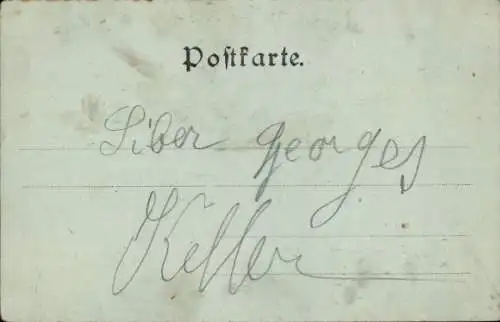 Postkarte.
Liber Georges
Keller